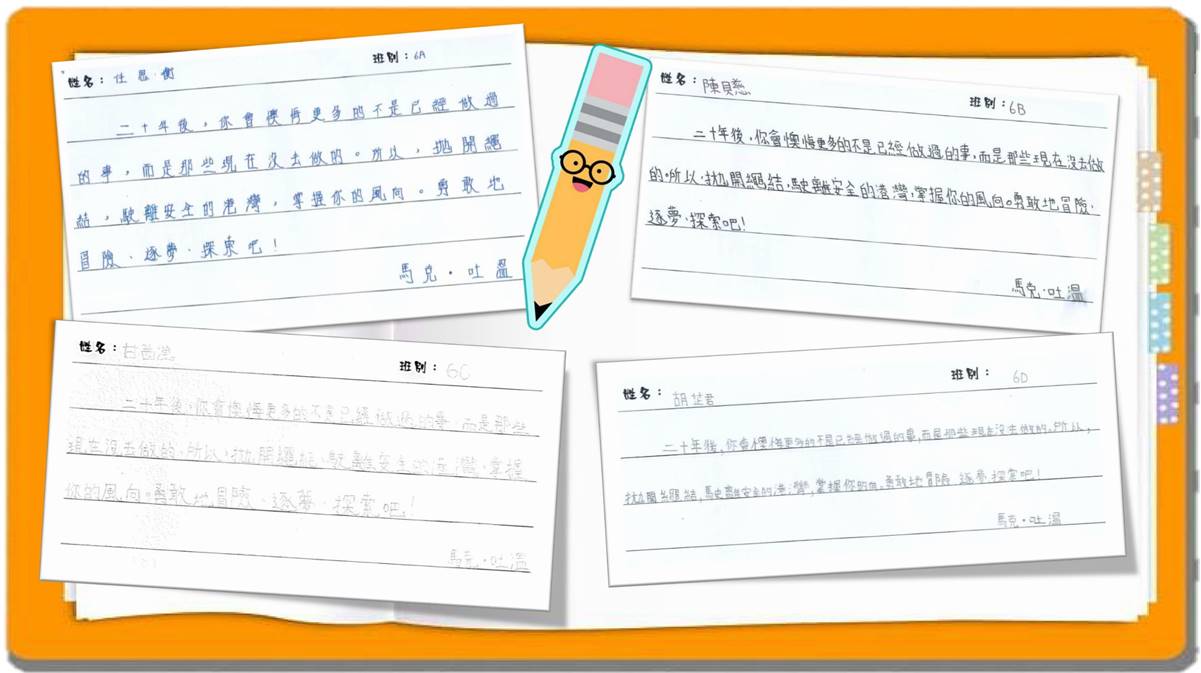 姓名：任思衡 班別：6A
二十年後，你會懊悔更多的不是已經做過
的事，而是那些現在沒去做的。所以，拋開繩
結，駛離安全的港灣，掌握你的風向。勇敢地
冒險、逐夢、探索吧！
馬克·吐溫
姓名：陳貝慈 班別：6B
二十年後，你會懊悔更多的不是已經做過的事，而是那些現在沒去做
的。所以，拋開繩結，駛離安全的港灣，掌握你的風向。勇敢地冒險、
逐夢、探索吧！
馬克·吐溫
姓名： 班別：6C
二十年後，你會懊悔更多的不是已經做過的事，而是那些
現在沒去做的。所以，拋開繩結，駛離安全的港灣，掌握
你的風向。勇敢地冒險、逐夢、探索吧！
馬克·吐溫
姓名：胡芷君 班別：6D
二十年後，你會懊悔更多的不是已經做過的事，而是那些現在沒去做的。所以，
拋開繩結，駛離安全的港灣，掌握你的，勇敢地冒險、逐夢、探索吧！
馬克·吐溫